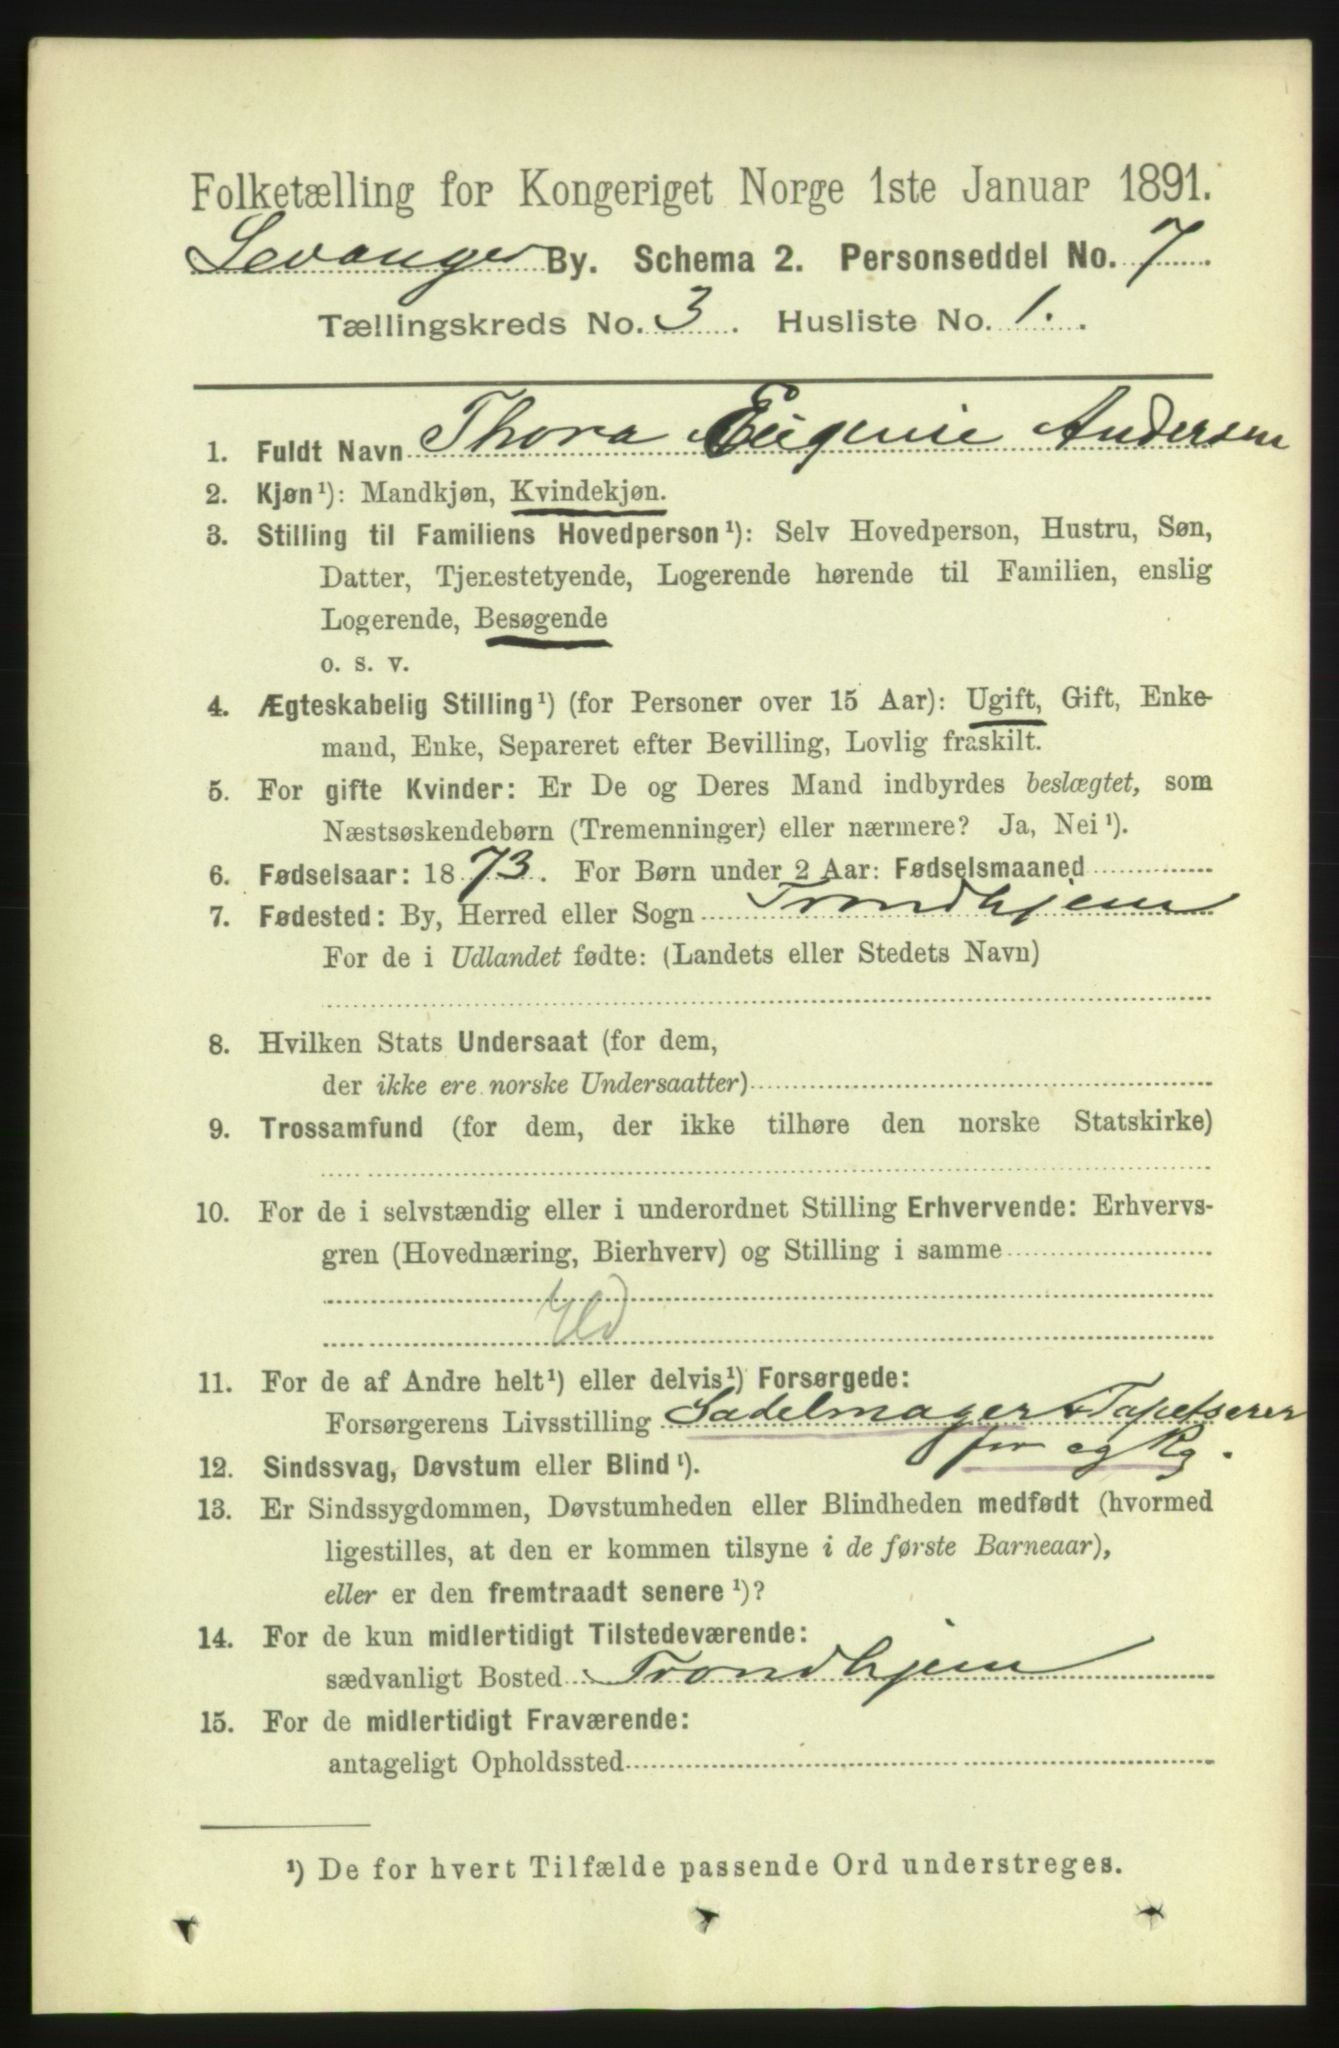 Folketælling for Kongeriget Norge 1ste Januar 1891.
Levanger By. Schema 2. Personseddel No. 7
Tællingskreds No. 3. Husliste No. 1.
1. Fuldt Navn Thora Eugenie Andersen
2. Kjøn¹): Mandkjøn, Kvindekjøn.
3. Stilling til Familiens Hovedperson¹): Selv Hovedperson, Hustru, Søn,
Datter, Tjenestetyende, Logerende hørende til Familien, enslig
Logerende, Besøgende
o. s. v.
4. Ægteskabelig Stilling¹) (for Personer over 15 Aar): Ugift, Gift, Enke-
mand, Enke, Separeret efter Bevilling, Lovlig fraskilt.
5. For gifte Kvinder: Er De og Deres Mand indbyrdes beslægtet, som
Næstsøskendebørn (Tremenninger) eller nærmere? Ja, Nei¹).
6. Fødselsaar: 1873. For Børn under 2 Aar: Fødselsmaaned
7. Fødested: By, Herred eller Sogn Trondhjem
For de i Udlandet fødte: (Landets eller Stedets Navn)
8. Hvilken Stats Undersaat (for dem,
der ikke ere norske Undersaatter)
9. Trossamfund (for dem, der ikke tilhøre den norske Statskirke)
10. For de i selvstændig eller i underordnet Stilling Erhvervende: Erhvervs-
gren (Hovednæring, Bierhverv) og Stilling i samme
11. For de af Andre helt¹) eller delvis¹) Forsørgede:
Forsørgerens Livsstilling Sadelmager & Tapetserer
for eg Rg.
12. Sindssvag, Døvstum eller Blind¹).
13. Er Sindssygdommen, Døvstumheden eller Blindheden medfødt (hvormed
ligestilles, at den er kommen tilsyne i de første Barneaar),
eller er den fremtraadt senere¹)?
14. For de kun midlertidigt Tilstedeværende:
sædvanligt Bosted Trondhjem
15. For de midlertidigt Fraværende:
antageligt Opholdssted
¹) De for hvert Tilfælde passende Ord understreges.